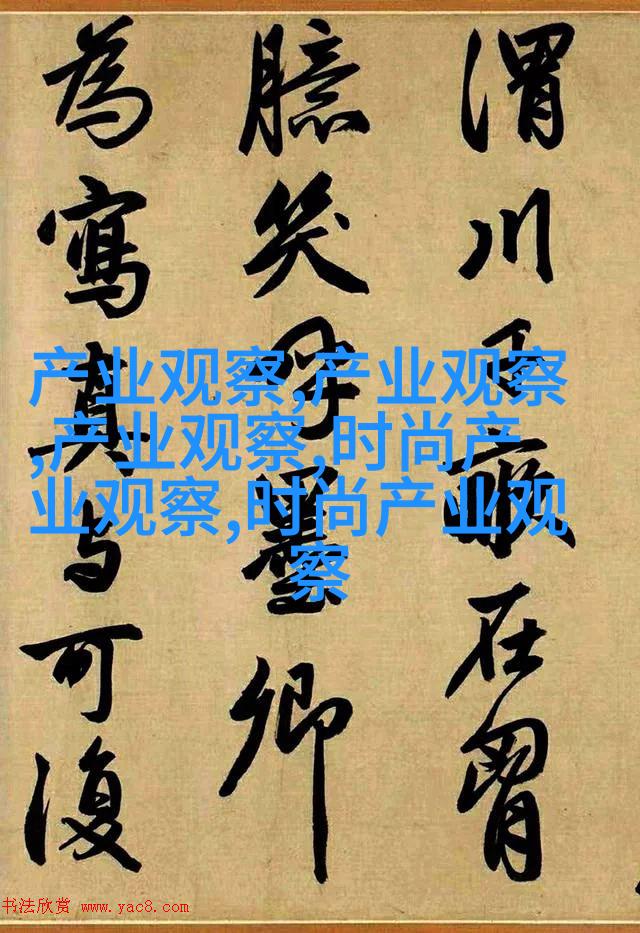 渭川千畝在胷
臆笑呼墨卿
為寫真与可復
产业观察,产业观察
,产业观察,时尚产
业观察,时尚产业观
察
书法欣赏 www.yac8.com